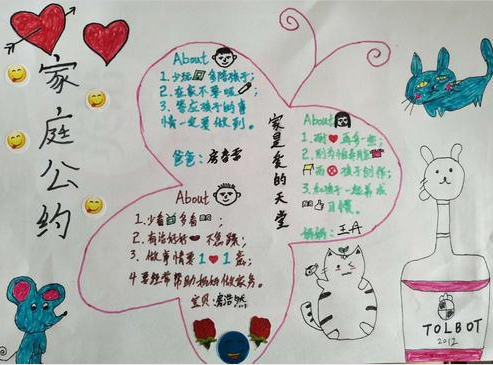 家庭公约
About
1.少玩 多陪孩子;
2.在家不要吸
3.答应孩子的事
情一定要做到。
爸爸:
家是爱的天堂
About
1.耐 再多一些;
3.和孩子一起养成
习惯。
妈妈:王丹
About
1.少看 多看 ;
2.有话好好 不急躁;
3.做事情要1 1意;
4要经常帮助妈妈做家务。
宝贝:
TOLBOT
2012